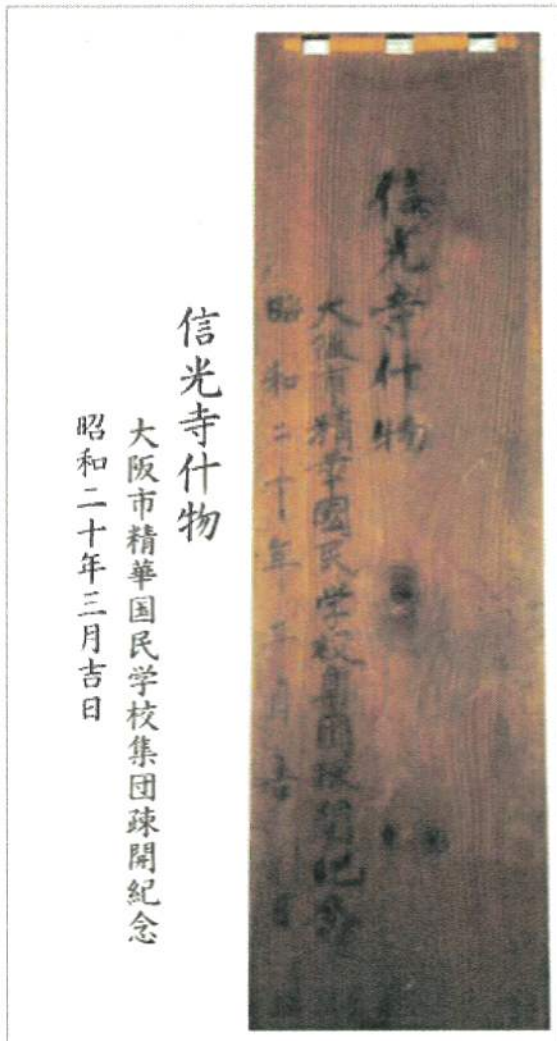 信光寺什物
大阪市精華國民学校集団疎開紀念
昭和二十年三月吉日
信光寺什物
大阪市精華国民学校集団疎開紀念
昭和二十年三月吉日